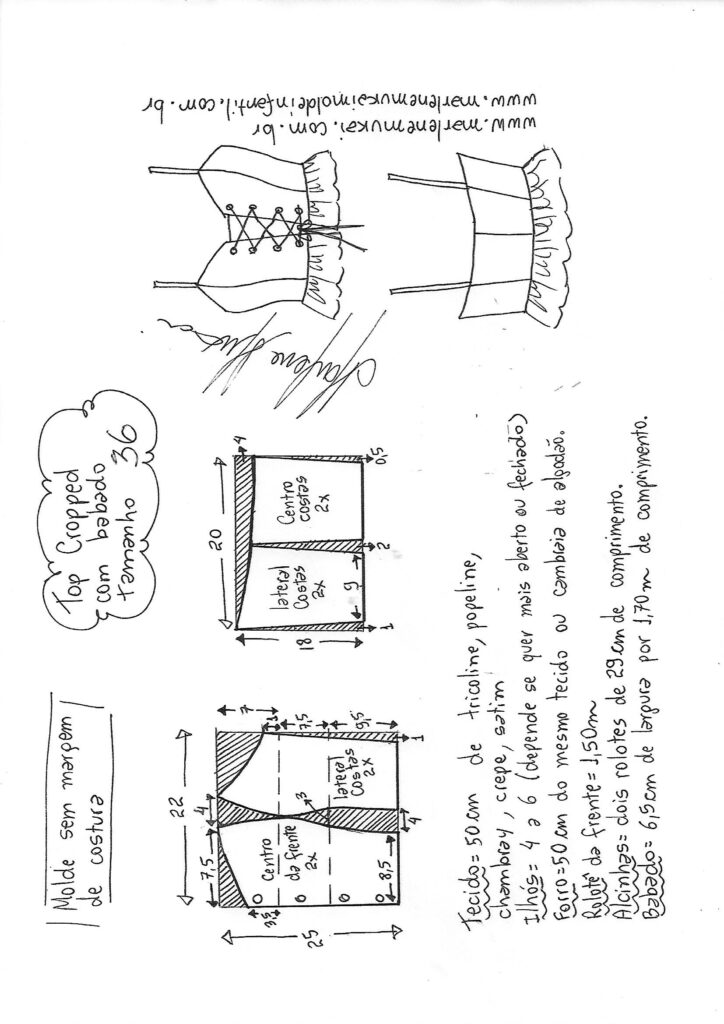 Molde sem margem
de costura
Top Cropped
com babado
tamanho 36
www.marlenemukai.com.br
www.marlenemukaimoldeinfantil.com.br
22
7,5
4
7
1
7,5
9,5
3,5
25
3
4
8,5
1
Centro
da frente
2x
lateral
Costas
2x
20
4
18
9
1
2
0,5
lateral
Costas
2x
Centro
costas
2x
Tecido= 50 cm de tricoline, popeline,
chambray, crepe, satim
Ilhós= 4 a 6 (depende se quer mais aberto ou fechado)
Forro=50 cm do mesmo tecido ou cambraia de algodão.
Rolotê da frente= 1,50m
Alcinhas= dois rolotes de 29 cm de comprimento.
Babado= 6,5 cm de largura por 1,70 m de comprimento.